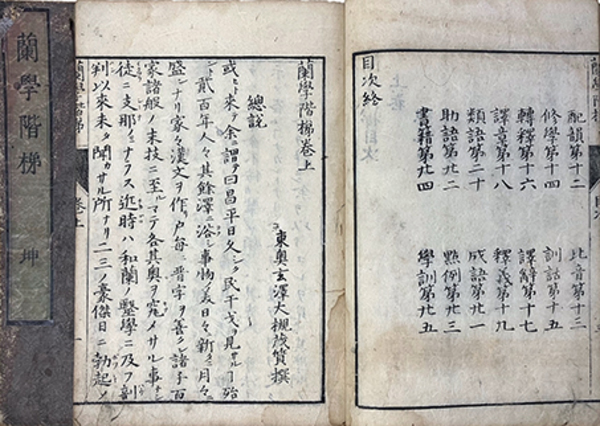 配韻第十二 比音第十三
修學第十四 訓詁第十五
轉釋第十六 譯辭第十七
譯章第十八 釋義第十九
類語第二十 成語第廿一
助語第廿二 點例第廿三
書籍第廿四 學訓第廿五
目次終
蘭學階梯卷上
東奧玄澤大槻茂質撰
總說
或ヒト來テ余ニ謂テ曰昌平日久シク民干戈ヲ見サルヿ殆
ント貳百年人々其餘澤ニ浴シ事物ノ美日々新ニ月々
盛ンナリ家々漢文ヲ作リ戶每ニ晉字ヲ善クシ諸子百
家諸般ノ末技ニ至ルマテ各其奧ヲ究メサル事ナシ
徒ニ支那ノミナラス近時ハ和蘭ノ醫學ニ及フ剖
判以來未タ聞カサル所ナリ二三ノ豪傑日ニ勃起シ
蘭學階梯 卷上
蘭學階梯 坤